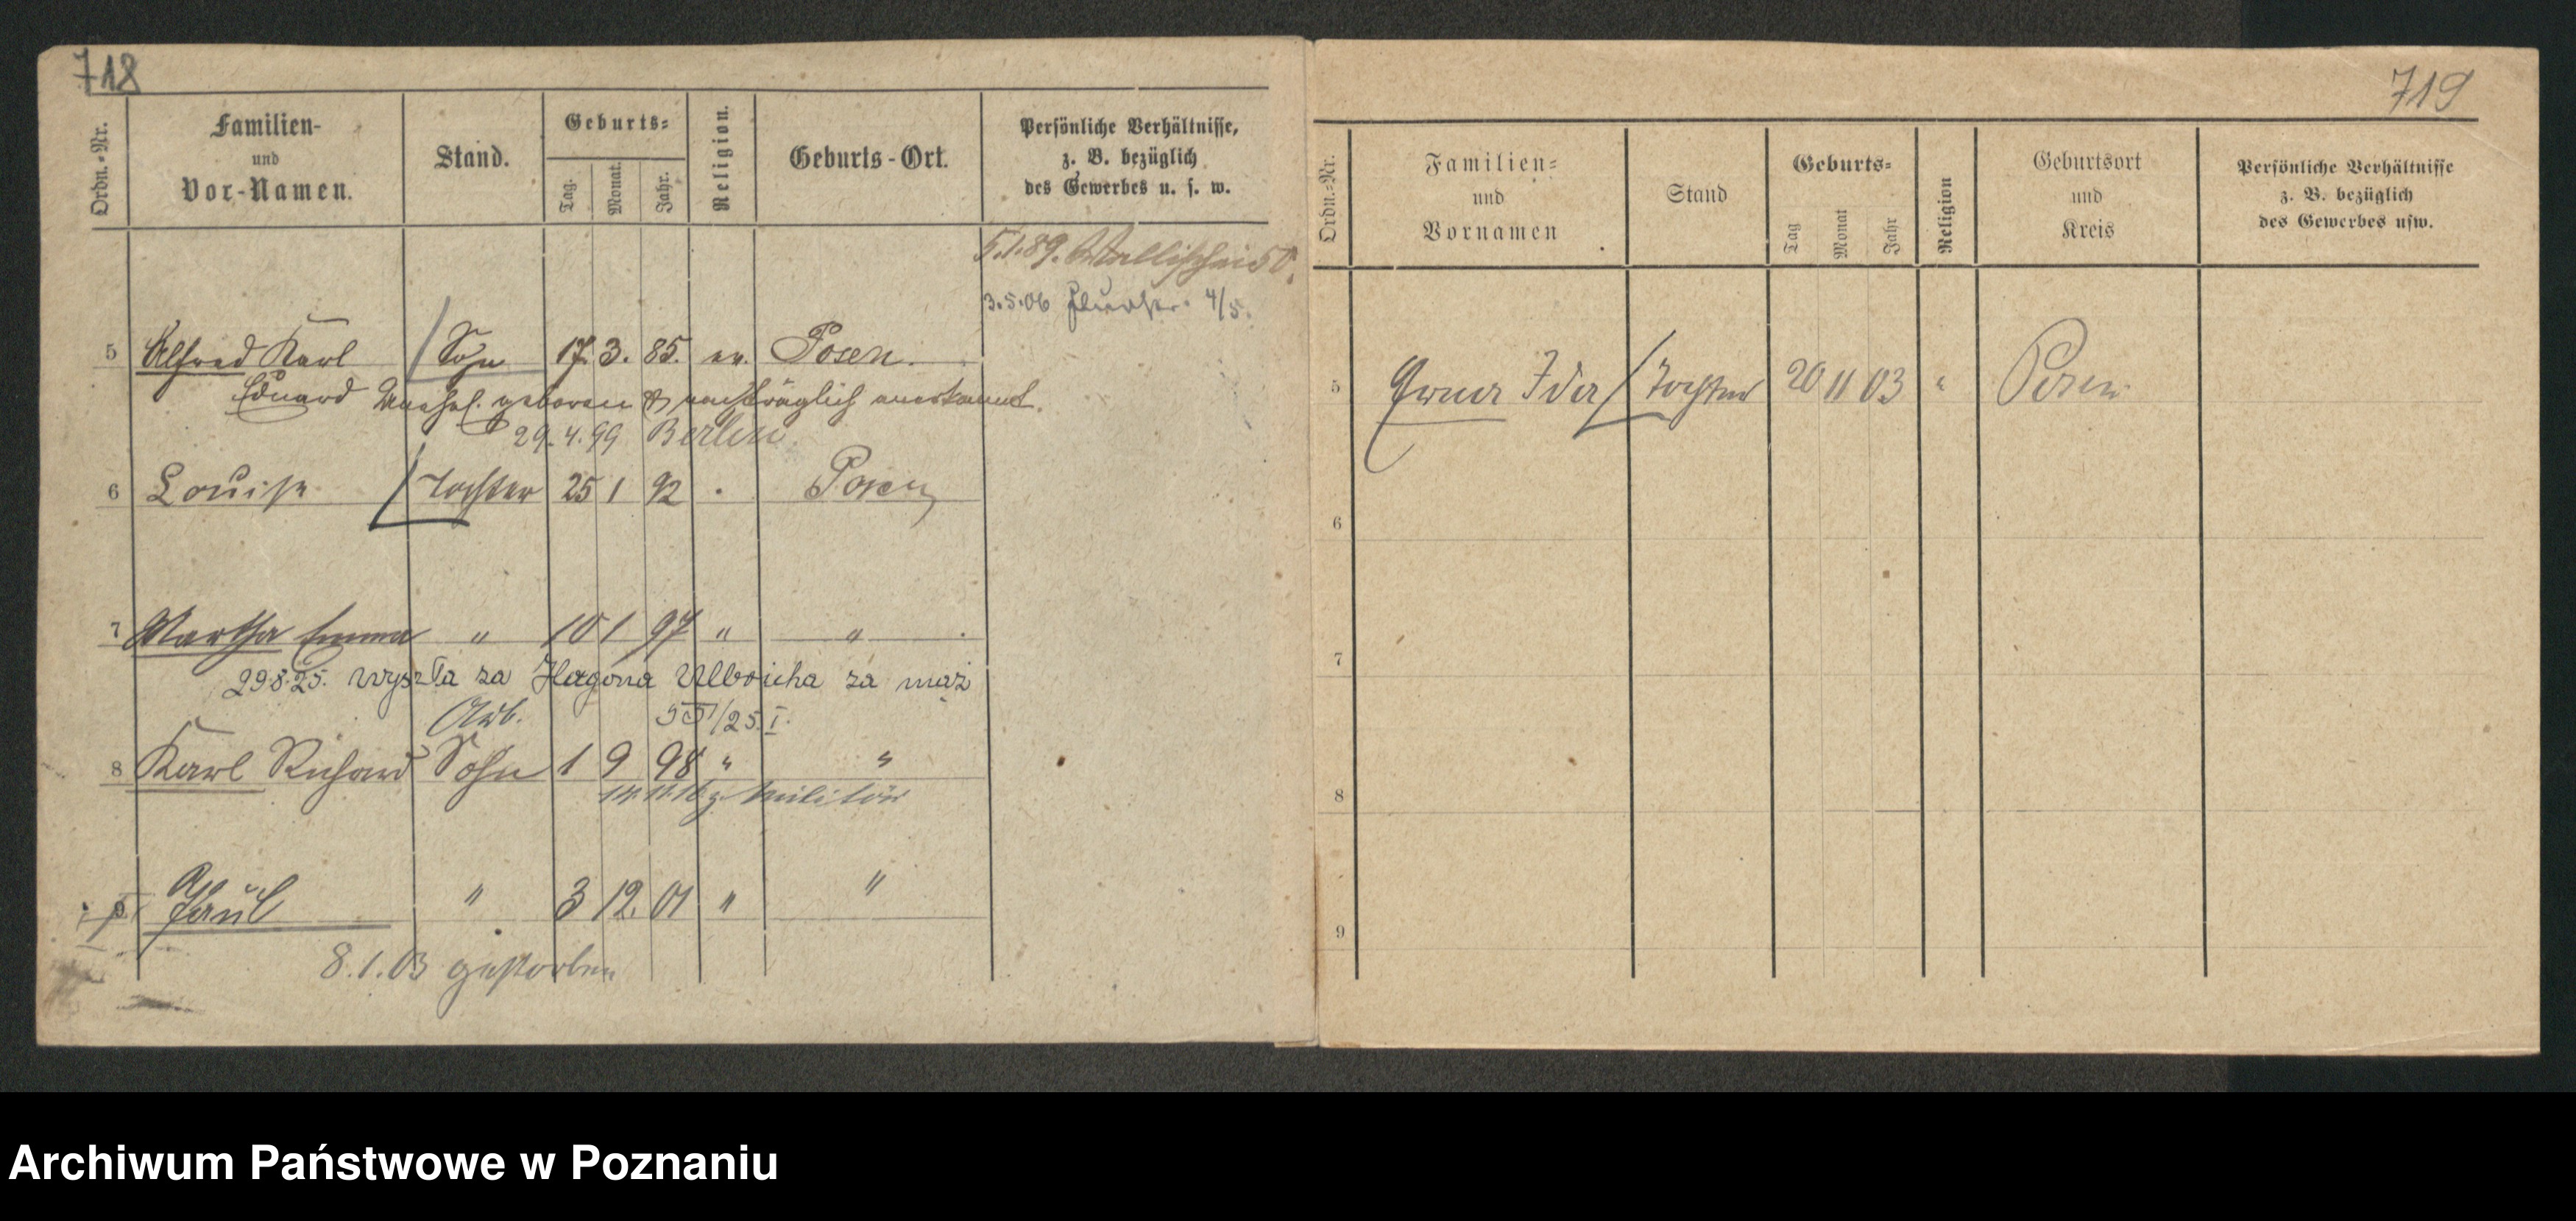 718
Ordn.-Nr.
Familien-
und
Vor-Namen.
Stand.
Geburts-
Tag.
Monat.
Jahr.
Religion.
Geburts-Ort.
Persönliche Verhältnisse,
z. B. bezüglich
des Gewerbes u. s. w.
5.1.89. Wallischei 50.
3.5.06 4/5.
5 Alfred Karl Sohn 17. 3. 85. ev. Posen.
Eduard Unehel. geboren & nachträglich anerkannt.
29.4.99 Berlin.
6 Louise Tochter 25 1 92 . Posen
7 Martha Emma " 10 1 97 " "
29.8.25. wyszła za Hugona Ulbricha za mąż
Arb. 55/25. I.
8 Karl Richard Sohn 1 9 98 " "
z. Militär
9 Paul " 3 12. 01 " "
8.1.03 gestorben
719
Ordn.-Nr.
Familien-
und
Vornamen
Stand
Geburts-
Tag
Monat
Jahr
Religion
Geburtsort
und
Kreis
Persönliche Verhältnisse
z. B. bezüglich
des Gewerbes usw.
5 Erna Ida Tochter 20 11 03 " Posen
6
7
8
9
Archiwum Państwowe w Poznaniu